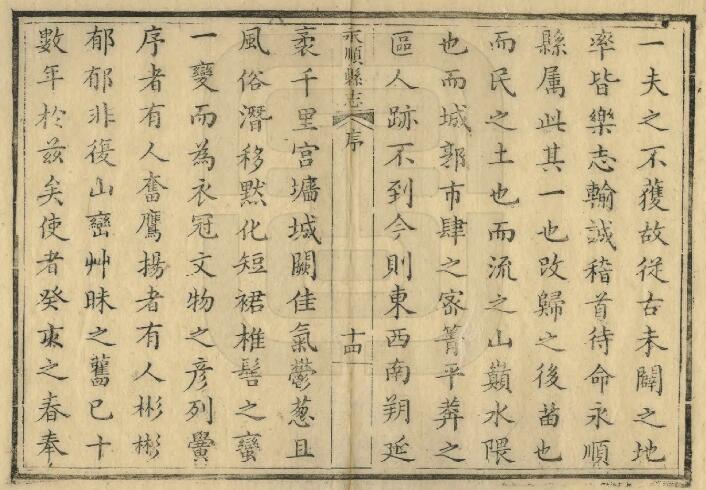 一夫之不獲故從古未闢之地
率皆樂志輸誠稽首待命永順
縣属此其一也改歸之後苗也
而民之土也而流之山巔水隈
也而城郭市肆之宻菁平莽之
區人跡不到今則東西南朔延
永順縣志 序 十四
袤千里宫墻城闕佳氣鬱葱且
風俗潛移黙化短裙椎髻之蠻
一變而為衣冠文物之彦列黌
序者有人奮鷹揚者有人彬彬
郁郁非復山巒艸昧之舊已十
數年於兹矣使者癸亥之春奉